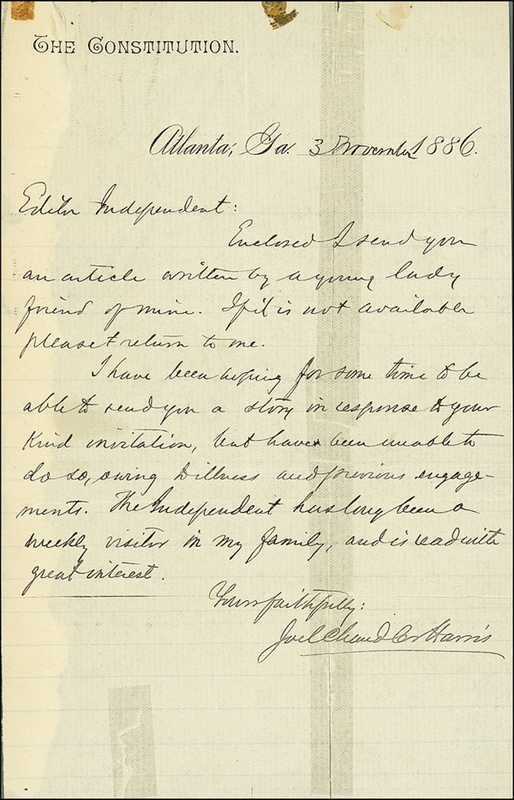 THE CONSTITUTION.
Atlanta, Ga. 3 November 1886.
Editor Independent:
Enclosed I send you
an article written by a young lady
friend of mine. If it is not available
please return to me.
I have been hoping for some time to be
able to send you a story in response to your
kind invitation, but have been unable to
do so, owing to illness and previous engage-
ments. The Independent has long been a
weekly visitor in my family, and is read with
great interest.
Yours faithfully:
Joel Chandler Harris